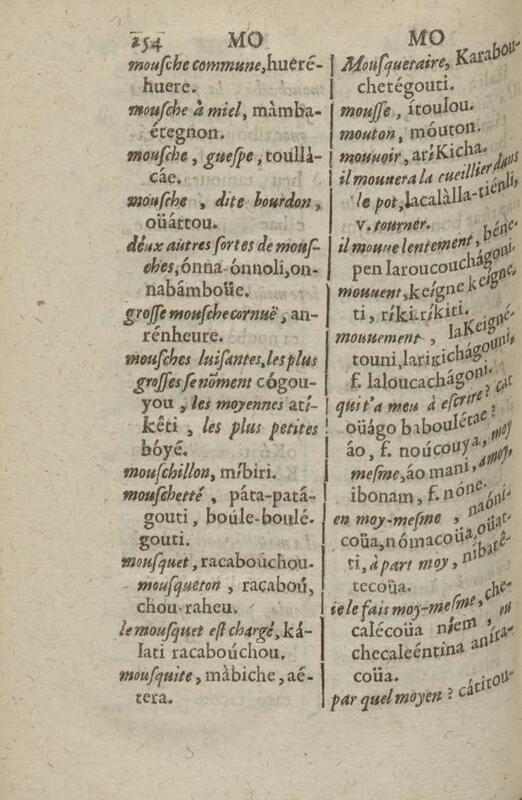 254 MO
mouſche commune, hueré-
huere.
mouſche à miel, màmba-
étegnon.
mouſche, gueſpe, toullì-
cáe.
mouſche, dite bourdon,
oüáttou.
déux autres ſortes de mouſ-
ches, ónna-ónnoli, on-
nabámboüe.
groſſe mouſche cornuë, an-
rénheure.
mouſches luiſantes, les plus
groſſes ſe nõment cógou-
you, les moyennes atí-
kêti, les plus petites
bóyé.
mouſchillon, míbiri.
mouſchetté, páta-patá-
gouti, boúle-boulé-
gouti.
mouſquet, racaboúchou.
mouſqueton, racaboú,
chou-raheu.
le mouſquet eſt chargé, ká-
lati racaboúchou.
mouſquite, màbiche, aé-
tera.
MO
Mouſquetaire, Karabou-
chetégouti.
mouſſe, ítoulou.
mouton, móuton.
mouuoir, aríKicha.
il mouuera la cueillier dans
le pot, lacalàlla-tiénli,
v. tourner.
il mouue lentement, béne-
pen laroucouchágoni.
mouuent, keígne keígne,
ti, ríki-ríkiti.
mouuement, laKeigné-
touni, larigichágouni,
f. laloucachágoni.
qui t'a meu à eſcrire? cát
oüágo baboulétae?
áo, f. noúcouya, moy
meſme, áo mani, amoy,
ibonam, f. nóne.
en moy-meſme, naóni-
coüa, nómacoüa, oüat-
ti, à part moy, nibatê-
tecoüa.
ie le fais moy-meſme, che-
calécoüa níem, ou
checaleéntina aníra-
coüa.
par quel moyen? cátitou-